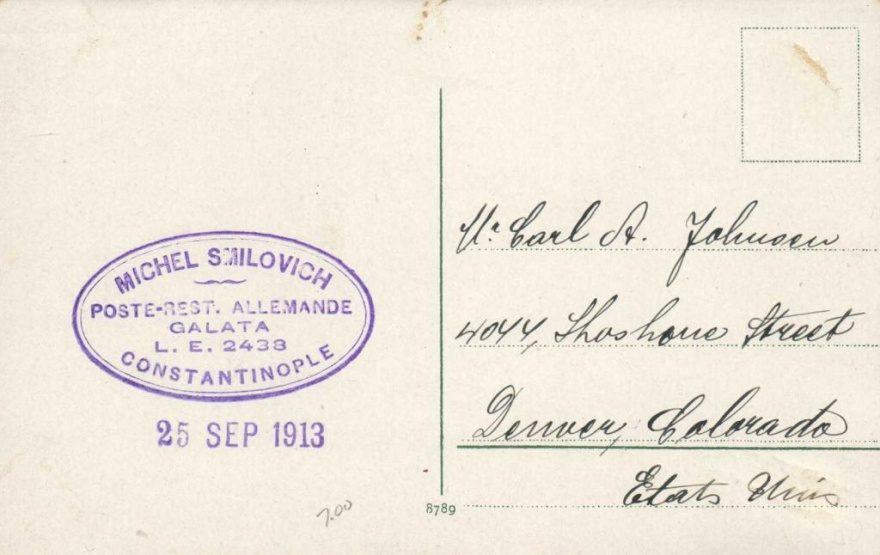 MICHEL SMILOVICH
POSTE-REST. ALLEMANDE
GALATA
L. E. 2438
CONSTANTINOPLE
25 SEP 1913
7.00
8789
Mr. Carl A. Johnson
4044, Shoshone Street
Denver, Colorado
Etats Unis